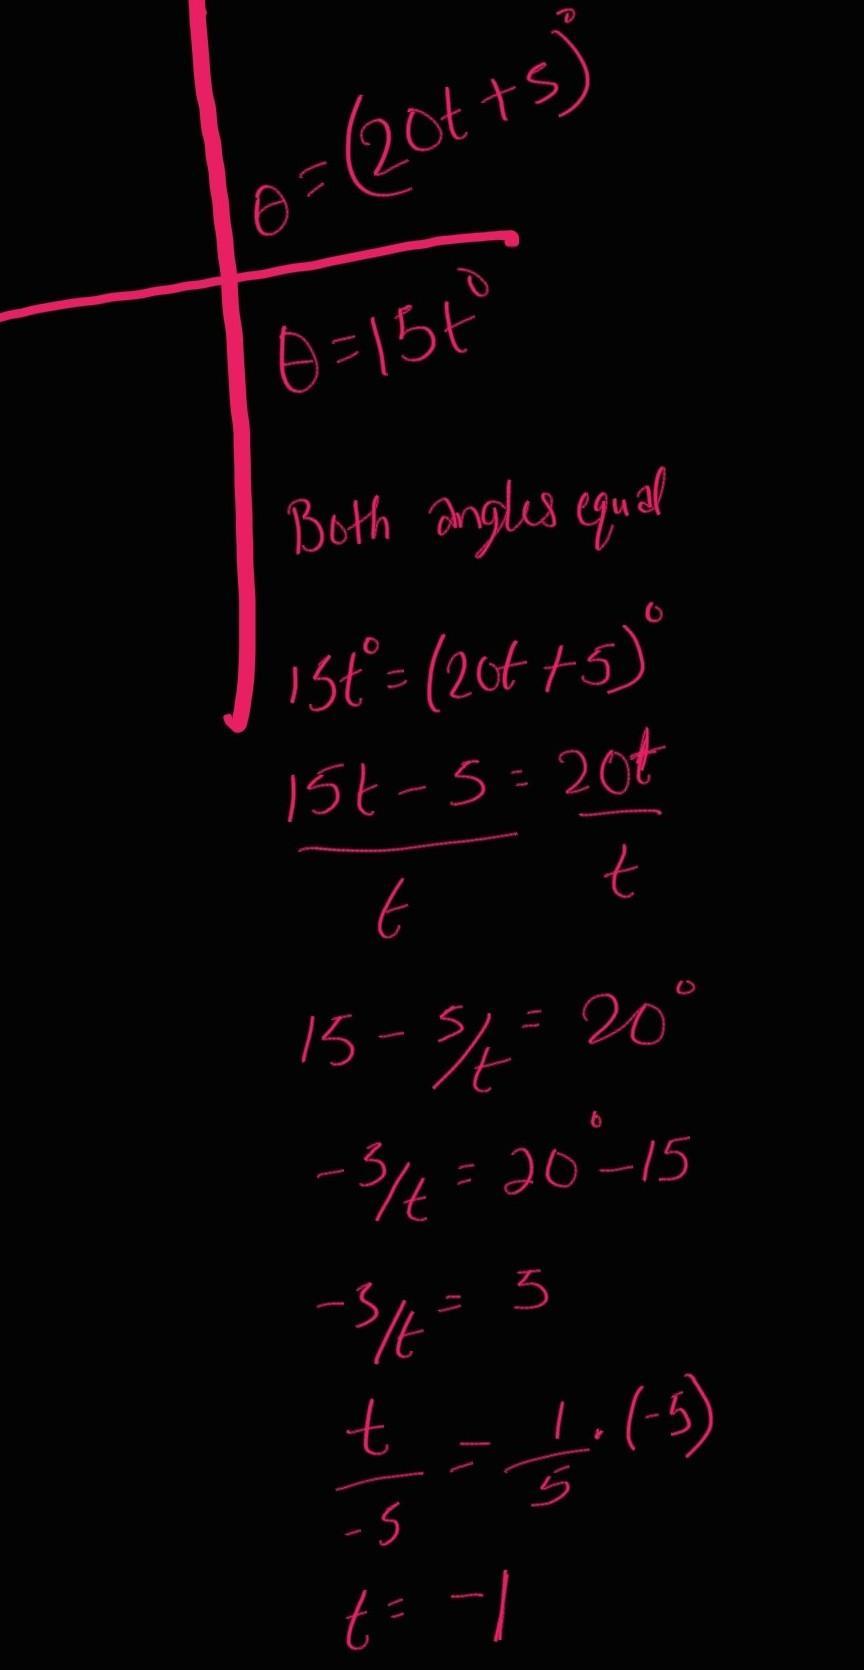 θ = (20t + 5)°
θ = 15t°
Both angles equal
15t° = (20t + 5)°
15t - 5 = 20t
t t
15 - 5/t = 20°
-3/t = 20° - 15
-3/t = 5
t/-5 = 1/5 . (-5)
t = -1